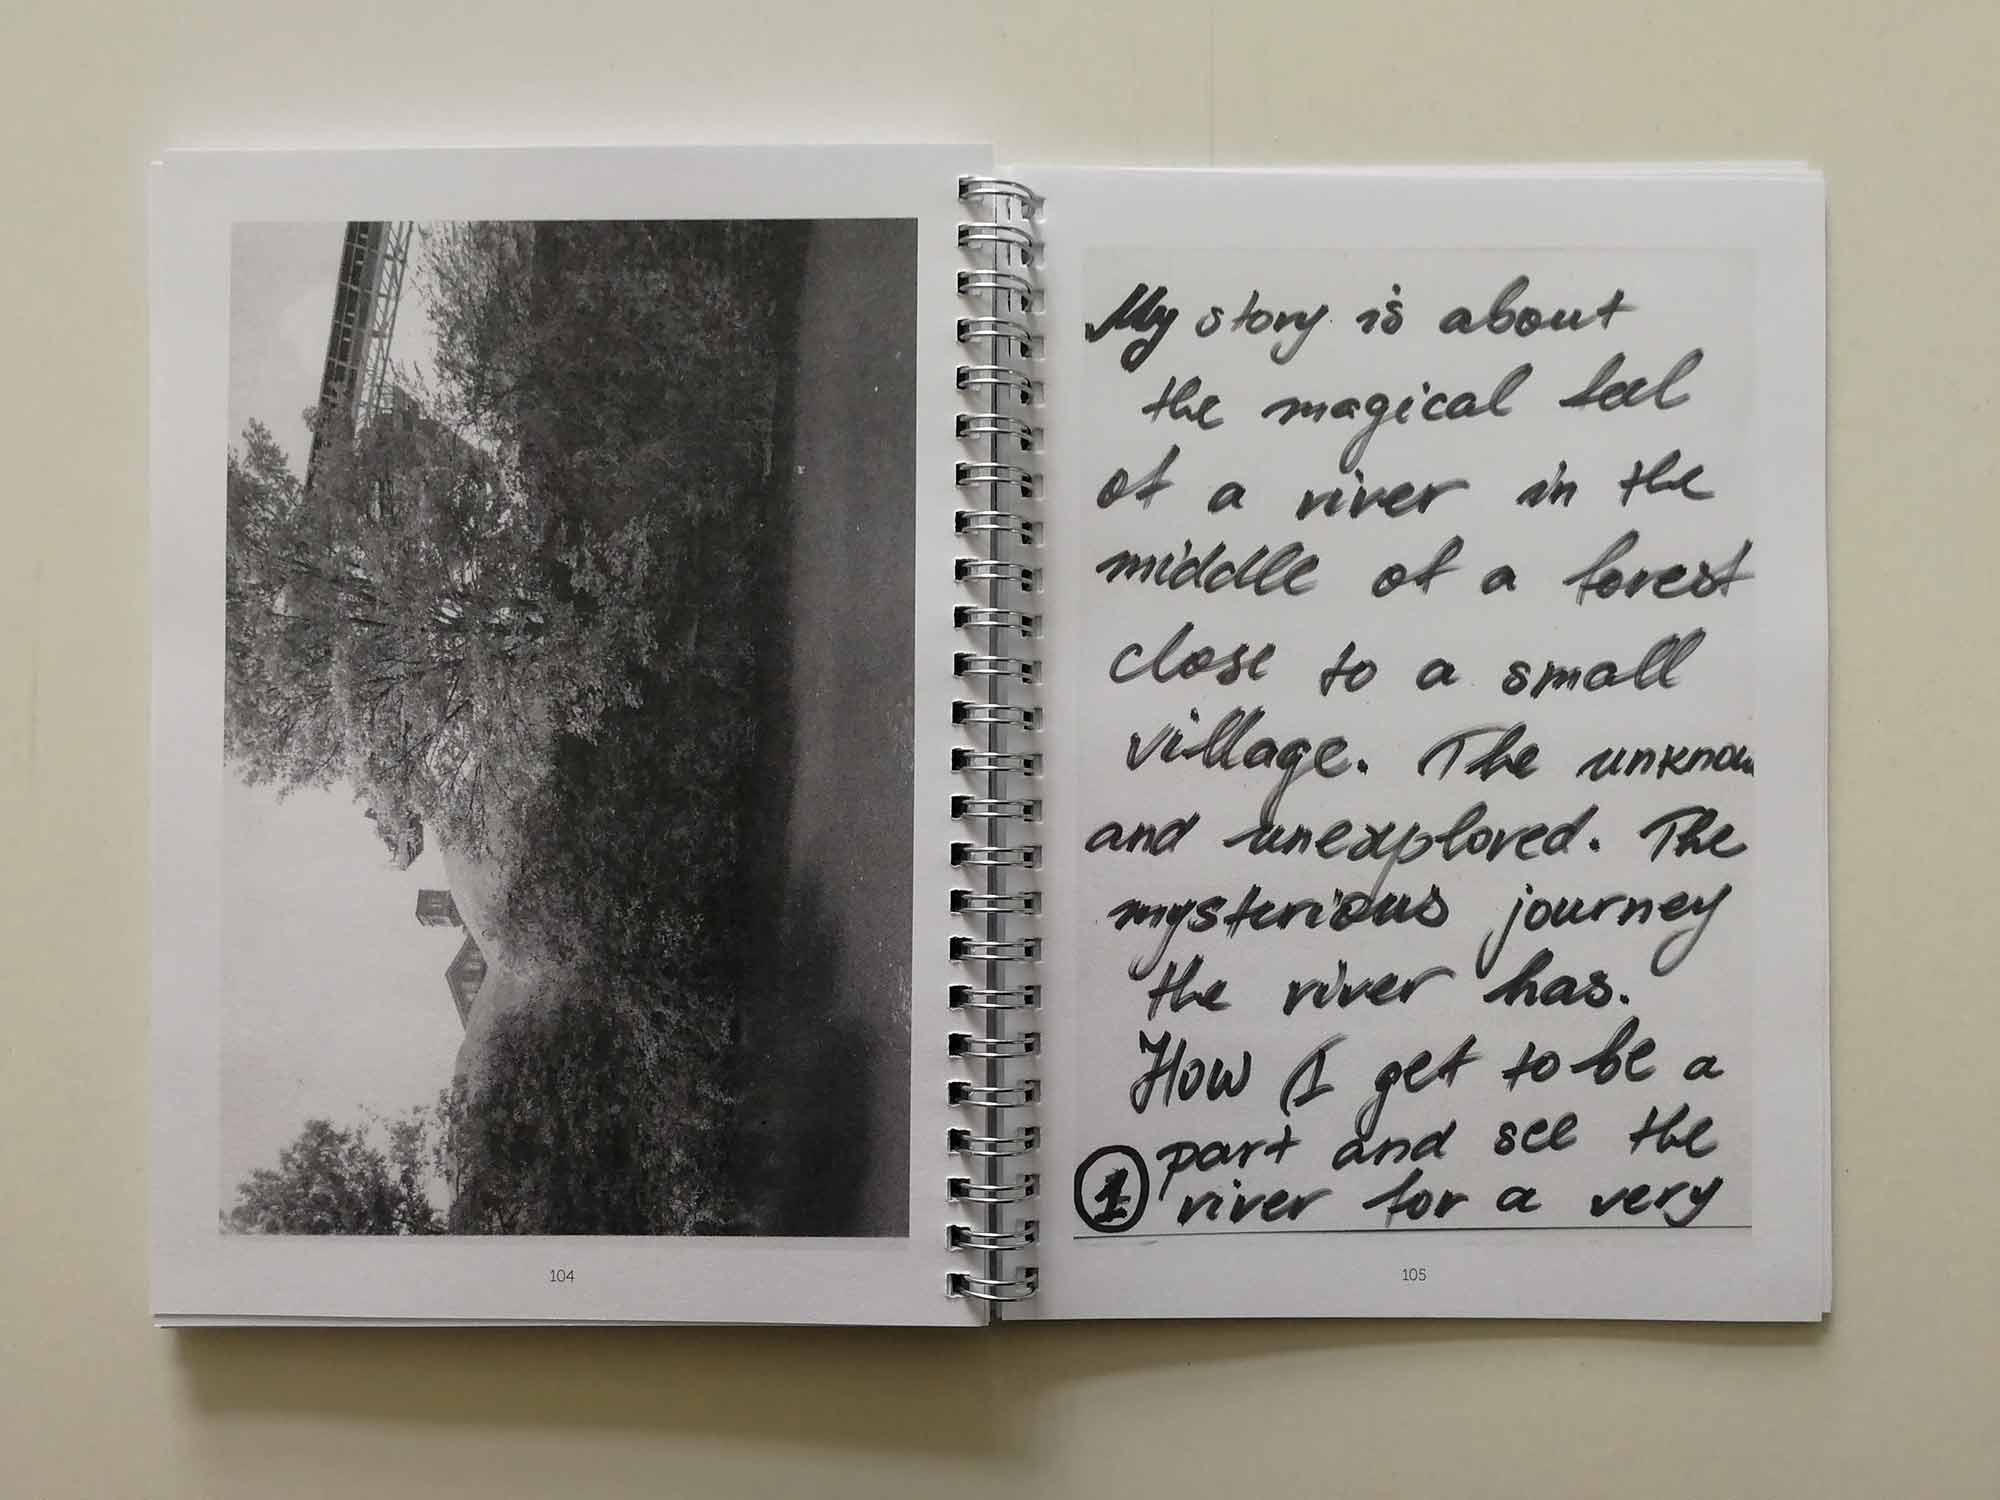 104
My story is about
the magical feel
of a river in the
middle of a forest
close to a small
village. The unknow
and unexplored. The
mysterious journey
the river has.
How I get to be a
part and see the
1 river for a very
105